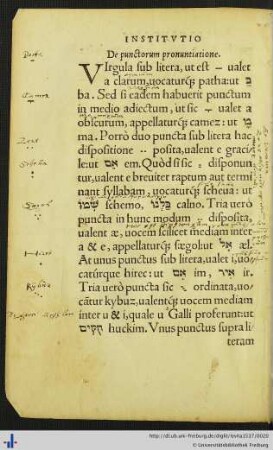 INSTITVTIO
De punctorum pronuntiatione.
VIrgula sub litera, ut est – ualet
a clarum, uocaturque pathaː ut בַּ
ba. Sed si eadem habuerit punctum
in medio adiectum, ut sic ualet a
obscurum, appellaturque camez: ut מָ
ma. Porrò duo puncta sub litera hac
dispositione posita, ualent e gracile:
ut אֵם em. Quòd si sic : disponuntur,
ualent e breuiter raptum aut terminant
syllabam, uocaturque scheua: ut
שְׁמוֹ schemo, כַּלְנוֹ calno. Tria verò
puncta in hunc modum disposita,
ualent æ, uocem scilicet mediam inter
a & e, appellaturque sægol: ut אֶל æl.
At unus punctus sub litera, ualet i, uocaturque
hirec: ut אִם im, אִיר ir.
Tria verò puncta sic ordinata, uocātur
kybuz, ualentque uocem mediam
inter u & i, quale u Galli proferunt: ut
חֻקִּים huckim. Vnus punctus supra literam
http://dl.ub.uni-freiburg.de/diglit/
© Universitätsbibliothek Freiburg